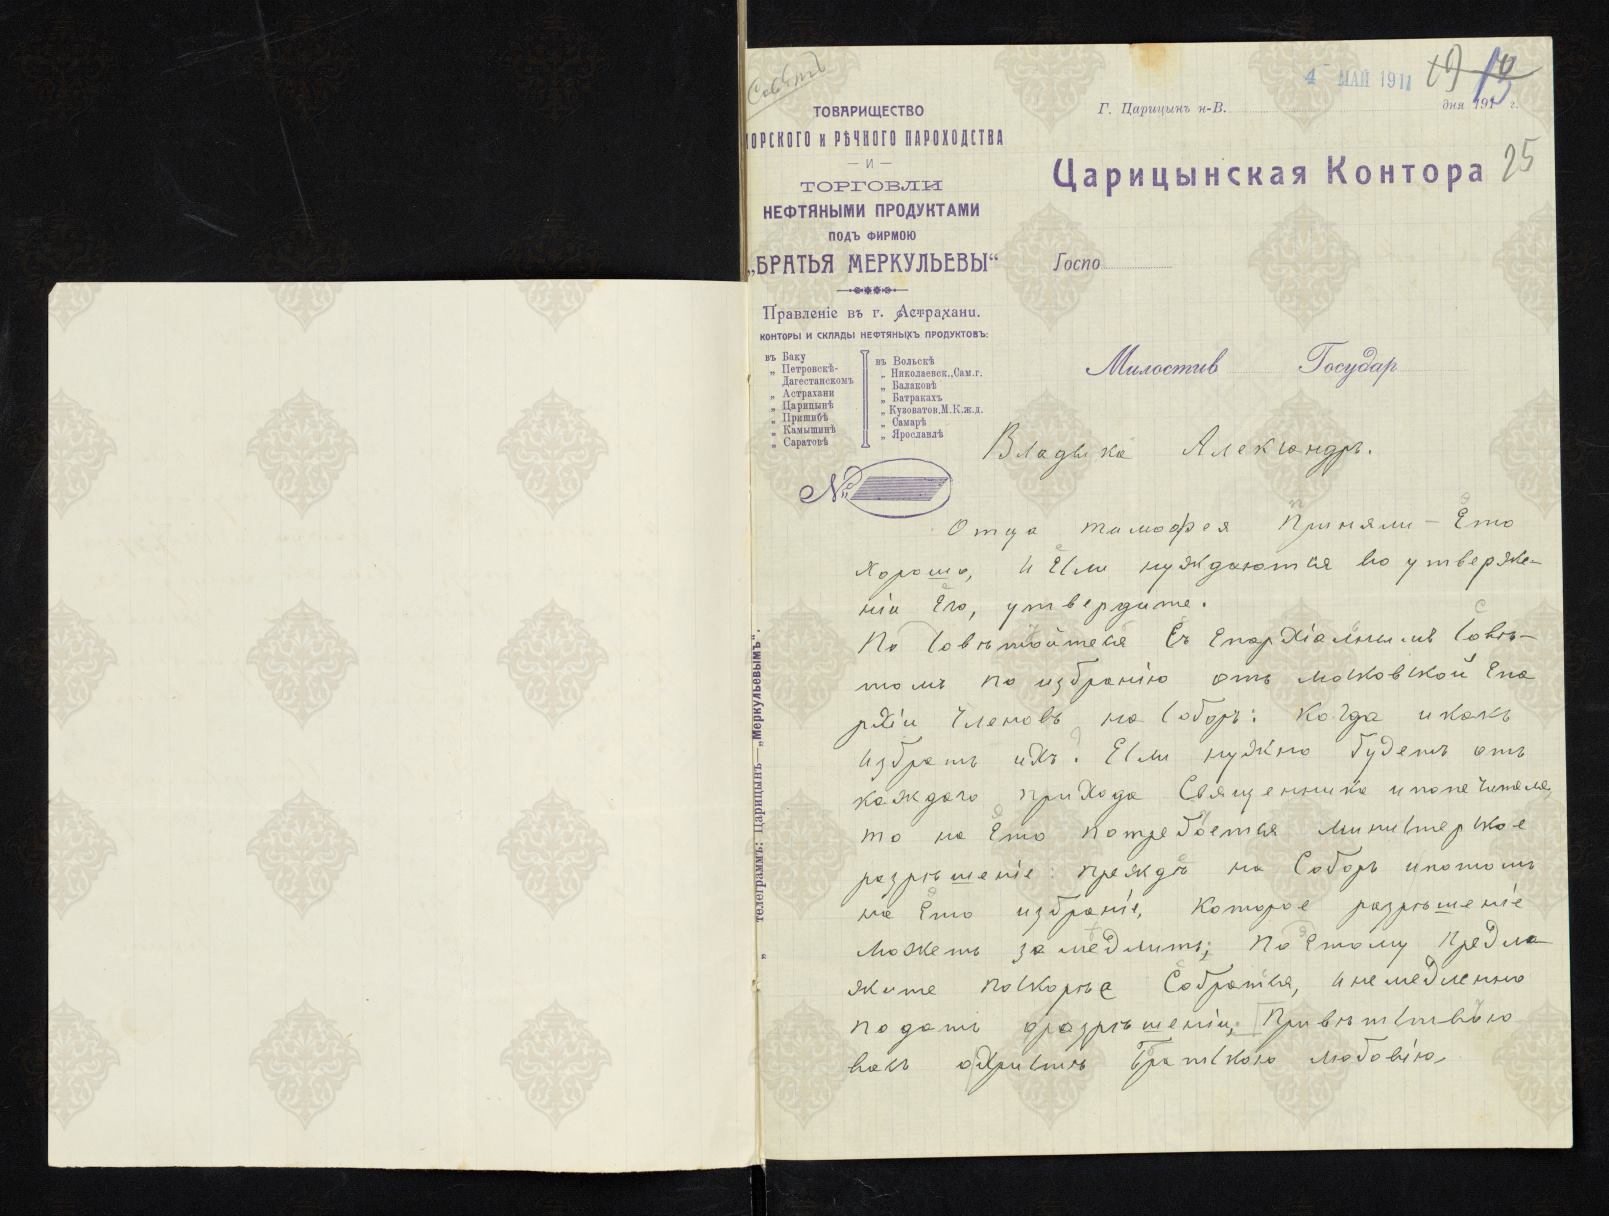 Совѣтъ
4 МАЙ 1911
19
25
ТОВАРИЩЕСТВО
МОРСКОГО и РѢЧНОГО ПАРОХОДСТВА
— И —
ТОРГОВЛИ
НЕФТЯНЫМИ ПРОДУКТАМИ
ПОДЪ ФИРМОЮ
„БРАТЬЯ МЕРКУЛЬЕВЫ“
Правленіе въ г. Астрахани.
КОНТОРЫ И СКЛАДЫ НЕФТЯНЫХЪ ПРОДУКТОВЪ:
въ Баку
„ Петровскѣ-
Дагестанскомъ
„ Астрахани
„ Царицынѣ
„ Пришибѣ
„ Камышинѣ
„ Саратовѣ
въ Вольскѣ
„ Николаевск.,Сам.г.
„ Балаковѣ
„ Батракахъ
„ Кузоватов.М.К.ж.д.
„ Самарѣ
„ Ярославлѣ
№
телеграммъ: Царицынъ—„Меркульевымъ“.
Г. Царицынъ н-В. дня 191 г.
Царицынская Контора
Госпо
Милостив Государ
Владыка Александръ.
Отца тимофея Приняли — Ето
хорошо, и Если нуждаются во утверже-
ніи Его, утвердите.
По совѣтойтеся Съ Епархіалнымъ Совѣ-
томъ по избранію отъ московской Епа
рхіи Членовъ на Соборъ: Когда икакъ
избрать ихъ? Если нужно будетъ отъ
каждаго прихода Священника ипопечителя,
то на Ето потребоется министерское
разрѣшеніе: преждѣ на Соборъ ипотомъ
на Ето избраніе, которое разрѣшеніе
можетъ замедлить; поЕтому предла
жите поскорѣе Собратся, инемедленно
подать оразрѣшеніи. Привѣтствою
васъ охристѣ братскою любовію,